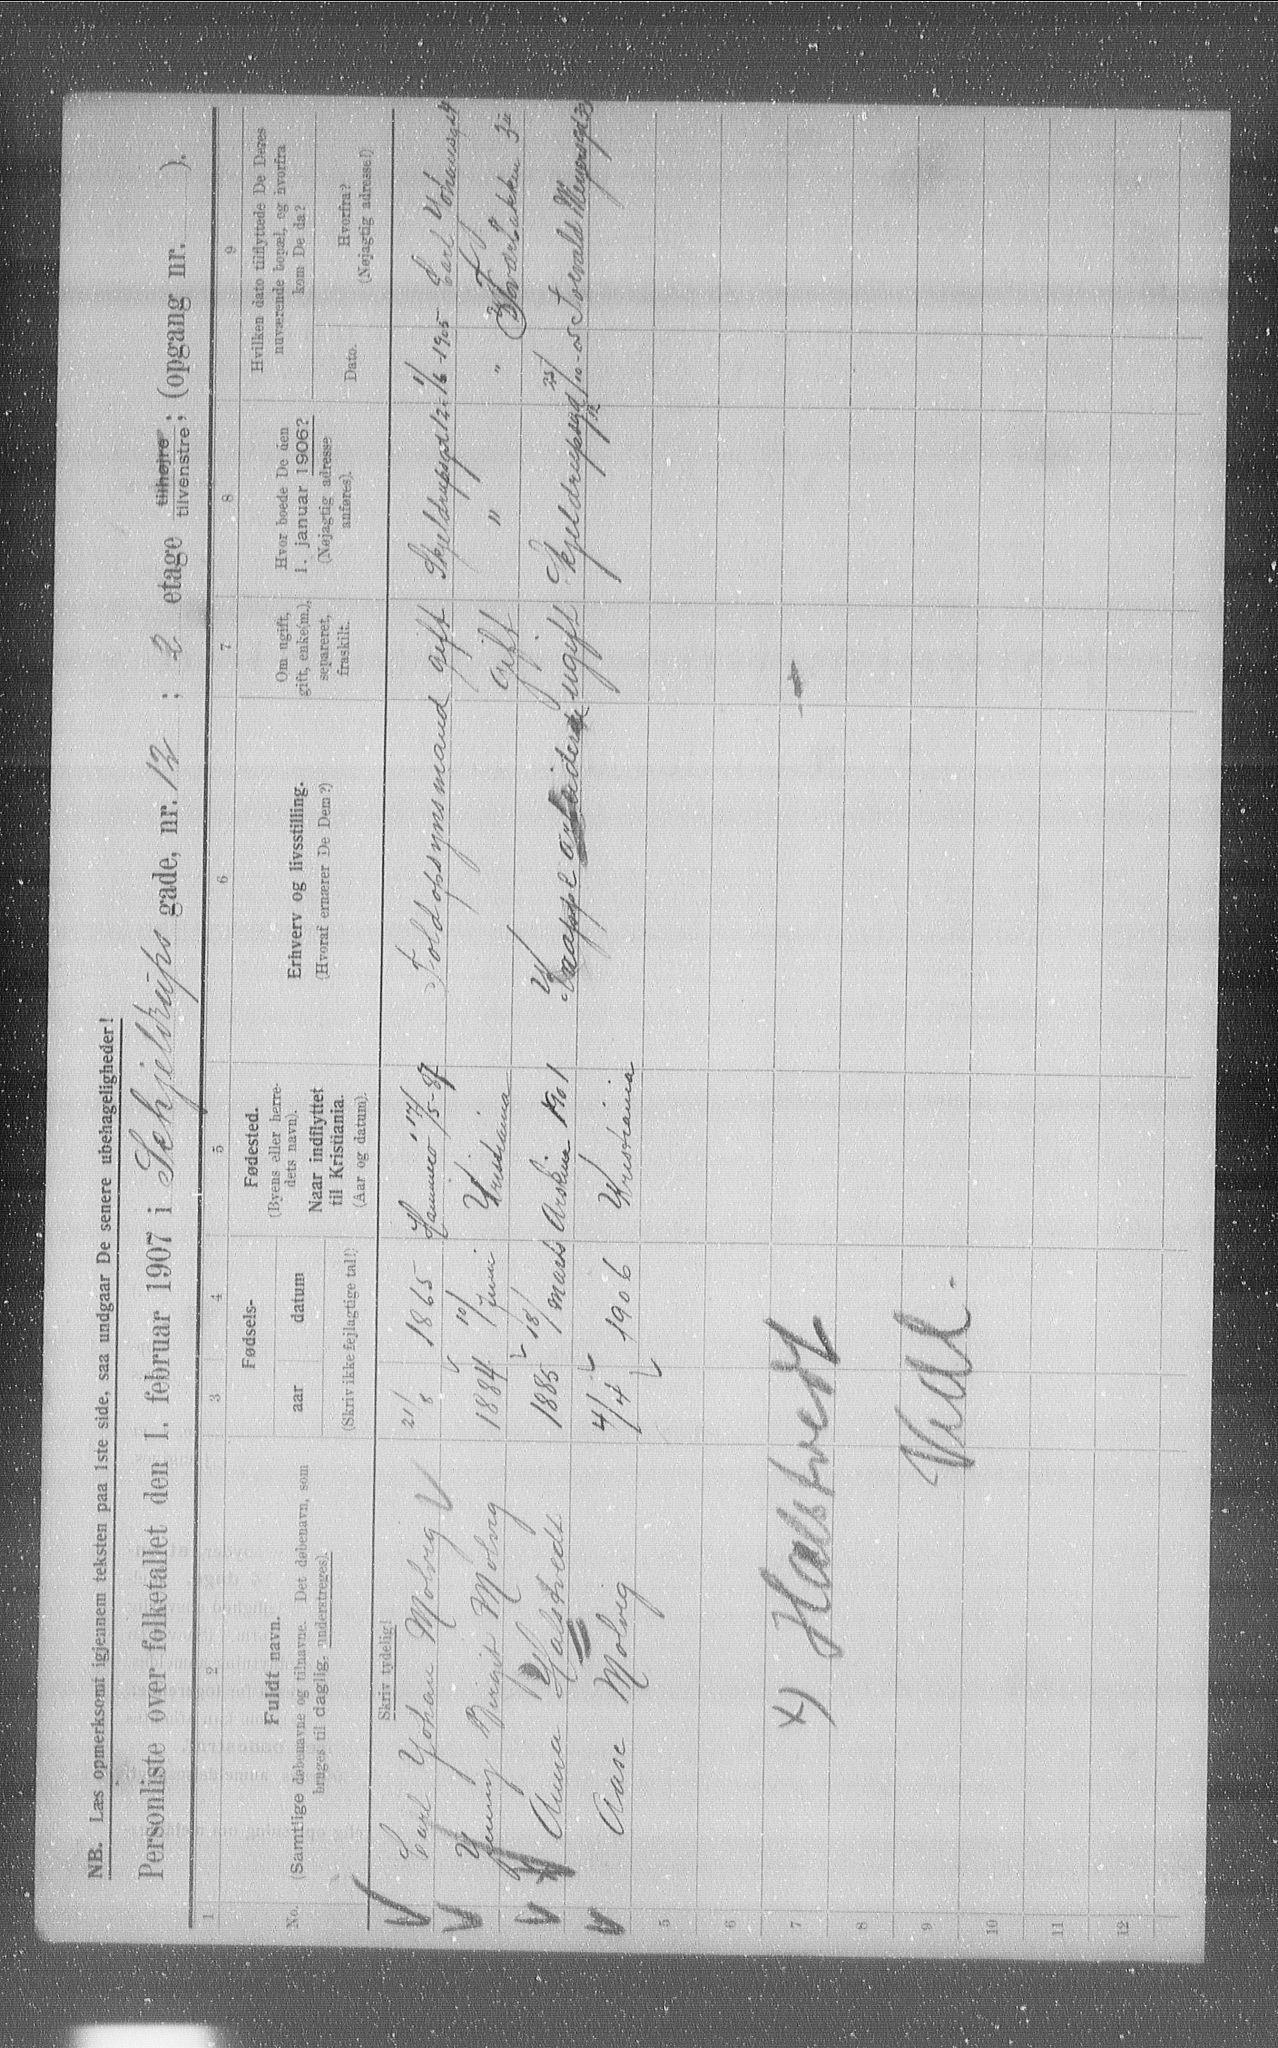 NB. Læs opmerksomt igjennem teksten paa 1ste side, saa undgaar De senere ubehageligheder!
Personliste over folketallet den 1. februar 1907 i Schjeldrups gade, nr. 12 ; 2 etage tilhøjre tilvenstre; (opgang nr. ).
1 2 3 4 5 6 7 8 9
No.
Fuldt navn.
(Samtlige døbenavne og tilnavne. Det døbenavn, som
bruges til daglig, understreges).
Skriv tydelig!
Fødsels-
aar datum
(Skriv ikke fejlagtige tal!)
Fødested.
(Byens eller herre-
dets navn).
Naar indflyttet
til Kristiania.
(Aar og datum).
Erhverv og livsstilling.
(Hvoraf ernærer De Dem?)
Om ugift,
gift, enke(m.),
separeret,
fraskilt.
Hvor boede De den
1. januar 1906?
(Nøjagtig adresse
anføres).
Hvilken dato tilflyttede De Deres
nuværende bopæl, og hvorfra
kom De da?
Dato.
Hvorfra?
(Nøjagtig adresse!)
Carl Johan Molvig 21/8 1865 17/5-87 Toldopsynsmand gift Skjeldrupsgd 12 1/6-1905 Carl Johansgd
Jenny Birgit Molvig 1884 10/Juni Kristiania Gift " "
Anna Halstvedt 1885 18/marts 1901 ugift Skjeldrupsgd 12 Torvald Meyersgd
Aase Molvig 4/4 1906 Kristiania
5
6
7
x) Halstvedt
8
9
10
11
12